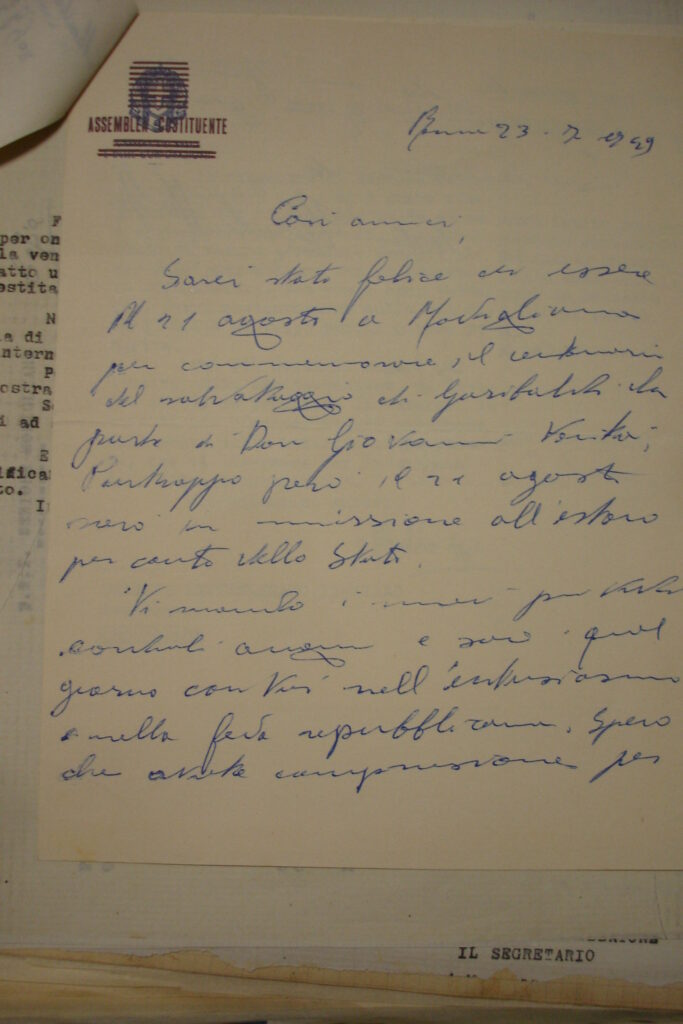 ASSEMBLEA COSTITUENTE
Roma 23 - 7 1949
Cari amici,
Sarei stato felice di essere
il 21 agosto a Modigliana
per commemorare il centenario
del salvataggio di Garibaldi da
parte di Don Giovanni Verità;
Purtroppo però il 21 agosto
sarò in missione all'estero
per conto dello Stato.
Vi mando i miei più vivi
cordiali auguri e sarò quel
giorno con Voi nell'entusiasmo
e nella fede repubblicana. Spero
che avrete comprensione per
F
per on
la ven
atto u
estita
N
a di
intern
P
ostra
S
i ad
E
ifica
to.
I
IL SEGRETARIO